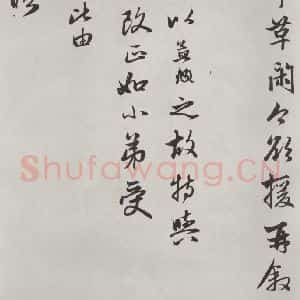 草閑人欲援再叙
以益煩之故特與
改正如小弟受
此由
Shufawang.CN